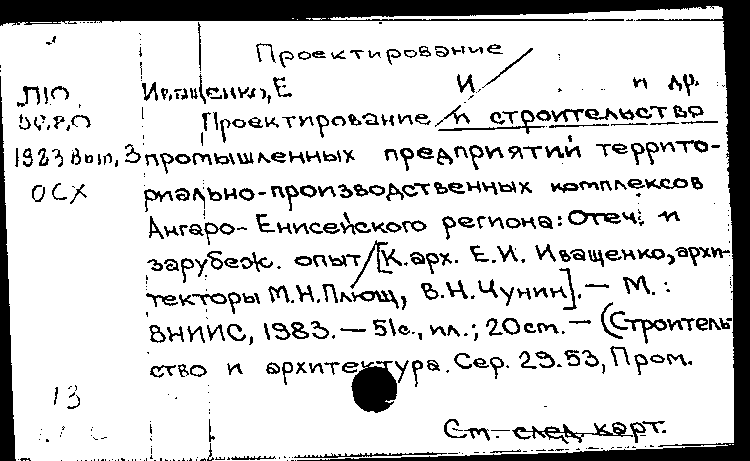 Проектирование
Иващенко, Е И и др.
Проектирование и строительство
1983 Вып, 3 промышленных предприятий террито-
ОСХ риально-производственных комплексов
Ангаро-Енисейского региона: Отеч. и
зарубеж. опыт/[К.арх. Е.И. Иващенко, архи-
текторы М.Н.Плющ, В.Н.Чунин]. — М. :
ВНИИС, 1983. — 51с., ил.; 20 см. — (Строитель-
ство и архитектура. Сер. 29.53, Пром.
13
См. след. карт.